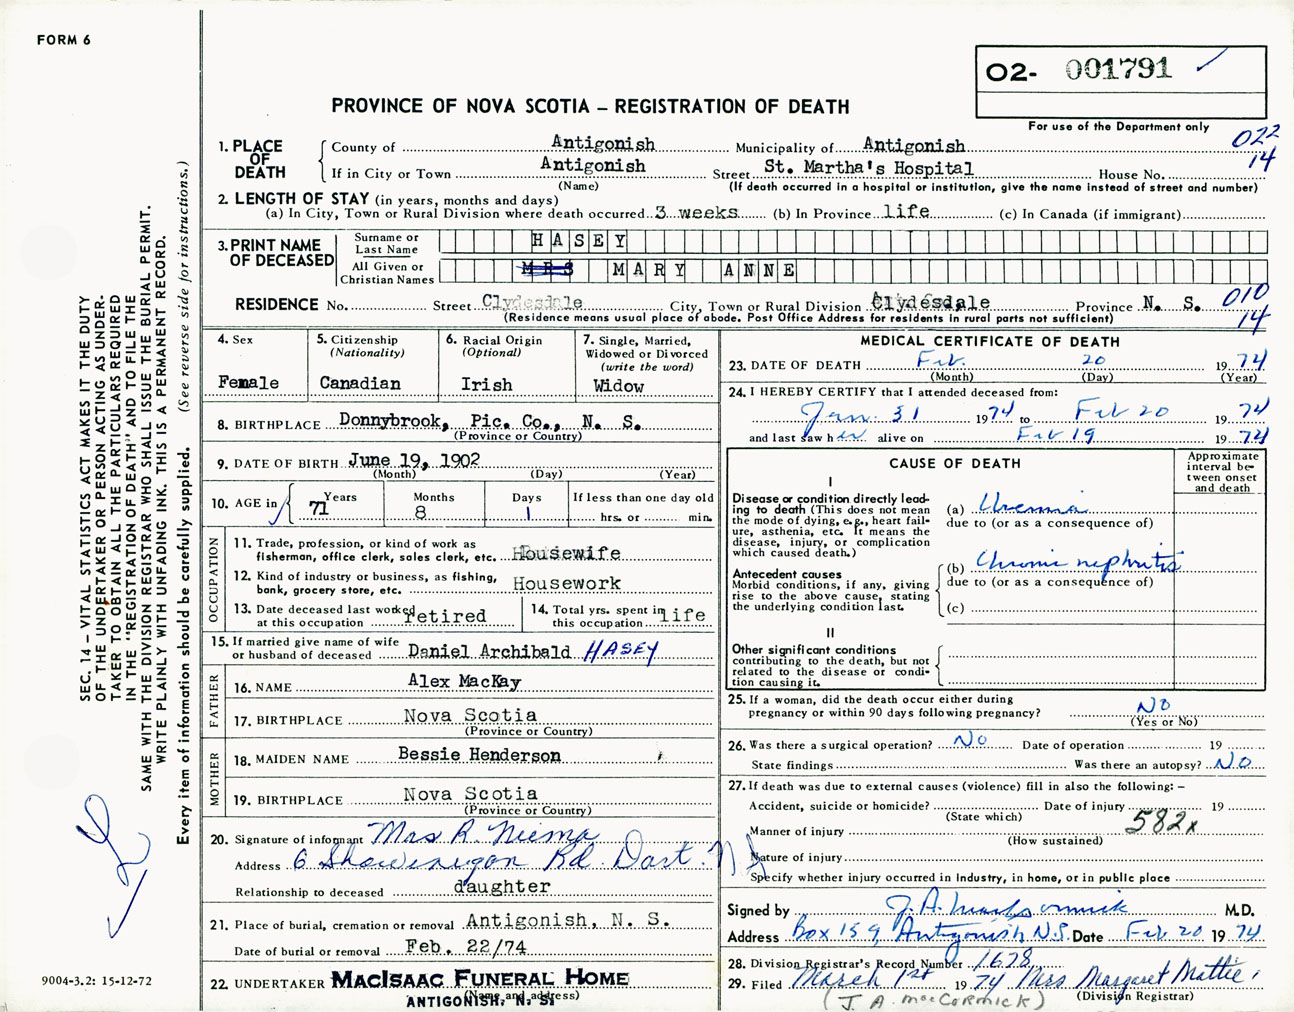 FORM 6
O2- 001791
PROVINCE OF NOVA SCOTIA – REGISTRATION OF DEATH
For use of the Department only
022
14
1. PLACE OF DEATH
County of Antigonish Municipality of Antigonish
If in City or Town Antigonish Street St. Martha's Hospital House No.
(Name) (If death occurred in a hospital or institution, give the name instead of street and number)
2. LENGTH OF STAY (in years, months and days)
(a) In City, Town or Rural Division where death occurred 3 weeks (b) In Province life (c) In Canada (if immigrant)
3. PRINT NAME OF DECEASED
Surname or Last Name HASEY
All Given or Christian Names MRS MARY ANNE
RESIDENCE No. Street Clydesdale City, Town or Rural Division Clydesdale Province N. S.
010
14
(Residence means usual place of abode. Post Office Address for residents in rural parts not sufficient)
4. Sex
Female
5. Citizenship
(Nationality)
Canadian
6. Racial Origin
(Optional)
Irish
7. Single, Married,
Widowed or Divorced
(write the word)
Widow
8. BIRTHPLACE Donnybrook, Pic. Co., N. S.
(Province or Country)
9. DATE OF BIRTH June 19, 1902
(Month) (Day) (Year)
10. AGE in
Years Months Days If less than one day old
71 8 1 hrs. or min.
OCCUPATION
11. Trade, profession, or kind of work as
fisherman, office clerk, sales clerk, etc. Housewife
12. Kind of industry or business, as fishing,
bank, grocery store, etc. Housework
13. Date deceased last worked
at this occupation retired
14. Total yrs. spent in
this occupation life
15. If married give name of wife
or husband of deceased Daniel Archibald HASEY
FATHER
16. NAME Alex MacKay
17. BIRTHPLACE Nova Scotia
(Province or Country)
MOTHER
18. MAIDEN NAME Bessie Henderson
19. BIRTHPLACE Nova Scotia
(Province or Country)
20. Signature of informant Mrs R.
Address 6 Rd. Dart. N S
Relationship to deceased daughter
21. Place of burial, cremation or removal Antigonish, N. S.
Date of burial or removal Feb. 22/74
22. UNDERTAKER MACISAAC FUNERAL HOME
(Name and address)
ANTIGONISH, N. S.
MEDICAL CERTIFICATE OF DEATH
23. DATE OF DEATH Feb. 20 1974
(Month) (Day) (Year)
24. I HEREBY CERTIFY that I attended deceased from:
Jan. 31 1974 to Feb 20 1974
and last saw her alive on Feb 19 1974
CAUSE OF DEATH
Approximate
interval be-
tween onset
and death
I
Disease or condition directly lead-
ing to death (This does not mean
the mode of dying, e.g., heart fail-
ure, asthenia, etc. It means the
disease, injury, or complication
which caused death.)
(a) Uremia
due to (or as a consequence of)
Antecedent causes
Morbid conditions, if any, giving
rise to the above cause, stating
the underlying condition last.
(b) Chronic nephritis
due to (or as a consequence of)
(c)
II
Other significant conditions
contributing to the death, but not
related to the disease or condi-
tion causing it.
25. If a woman, did the death occur either during
pregnancy or within 90 days following pregnancy? No
(Yes or No)
26. Was there a surgical operation? No Date of operation 19
State findings Was there an autopsy? No
27. If death was due to external causes (violence) fill in also the following: –
Accident, suicide or homicide? Date of injury 19
(State which)
582x
Manner of injury
(How sustained)
Nature of injury
Specify whether injury occurred in Industry, in home, or in public place
Signed by J. A. MacCormick M.D.
Address Box 159, Antigonish N.S. Date Feb 20 1974
28. Division Registrar's Record Number 1678
29. Filed March 1st 1974 Mrs Margaret Mattie
(J. A. MacCORMICK) (Division Registrar)
SEC. 14 – VITAL STATISTICS ACT MAKES IT THE DUTY
OF THE UNDERTAKER OR PERSON ACTING AS UNDER-
TAKER TO OBTAIN ALL THE PARTICULARS REQUIRED
IN THE "REGISTRATION OF DEATH" AND TO FILE THE
SAME WITH THE DIVISION REGISTRAR WHO SHALL ISSUE THE BURIAL PERMIT.
WRITE PLAINLY WITH UNFADING INK. THIS IS A PERMANENT RECORD.
Every item of information should be carefully supplied. (See reverse side for instructions.)
9004-3.2: 15-12-72